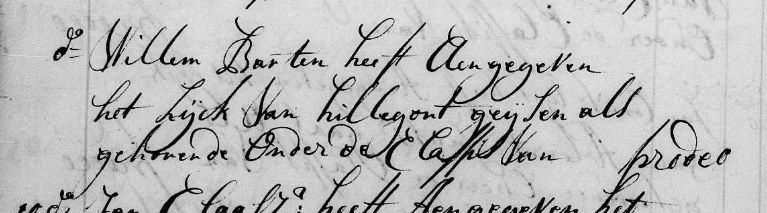 do Willem Barten heeft Aengegeven
het Lijck Van hillegont geijsen als
gehorende Onder de Classis Van prodeo
do Jan Claasz: heeft Aengegeven het